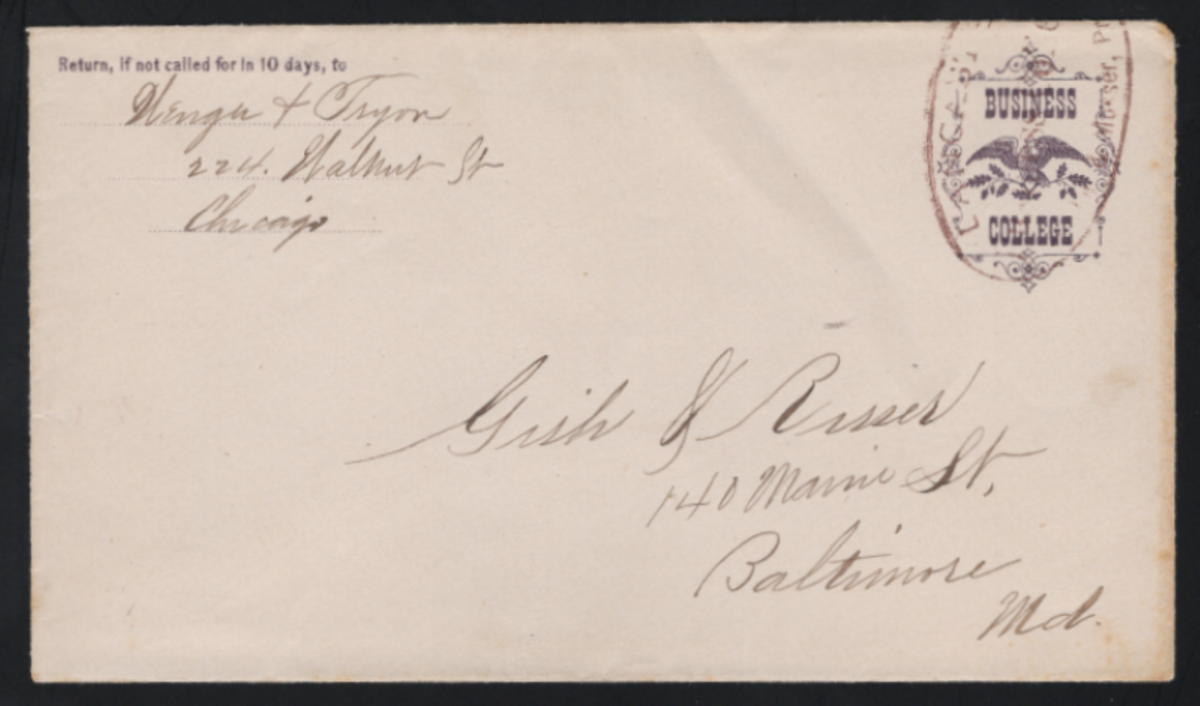 Return, if not called for in 10 days, to
Wenger & Tryon
224. Walnut St
Chicago
BUSINESS
COLLEGE
Gish & Risser
140 Maine St,
Baltimore
Md.